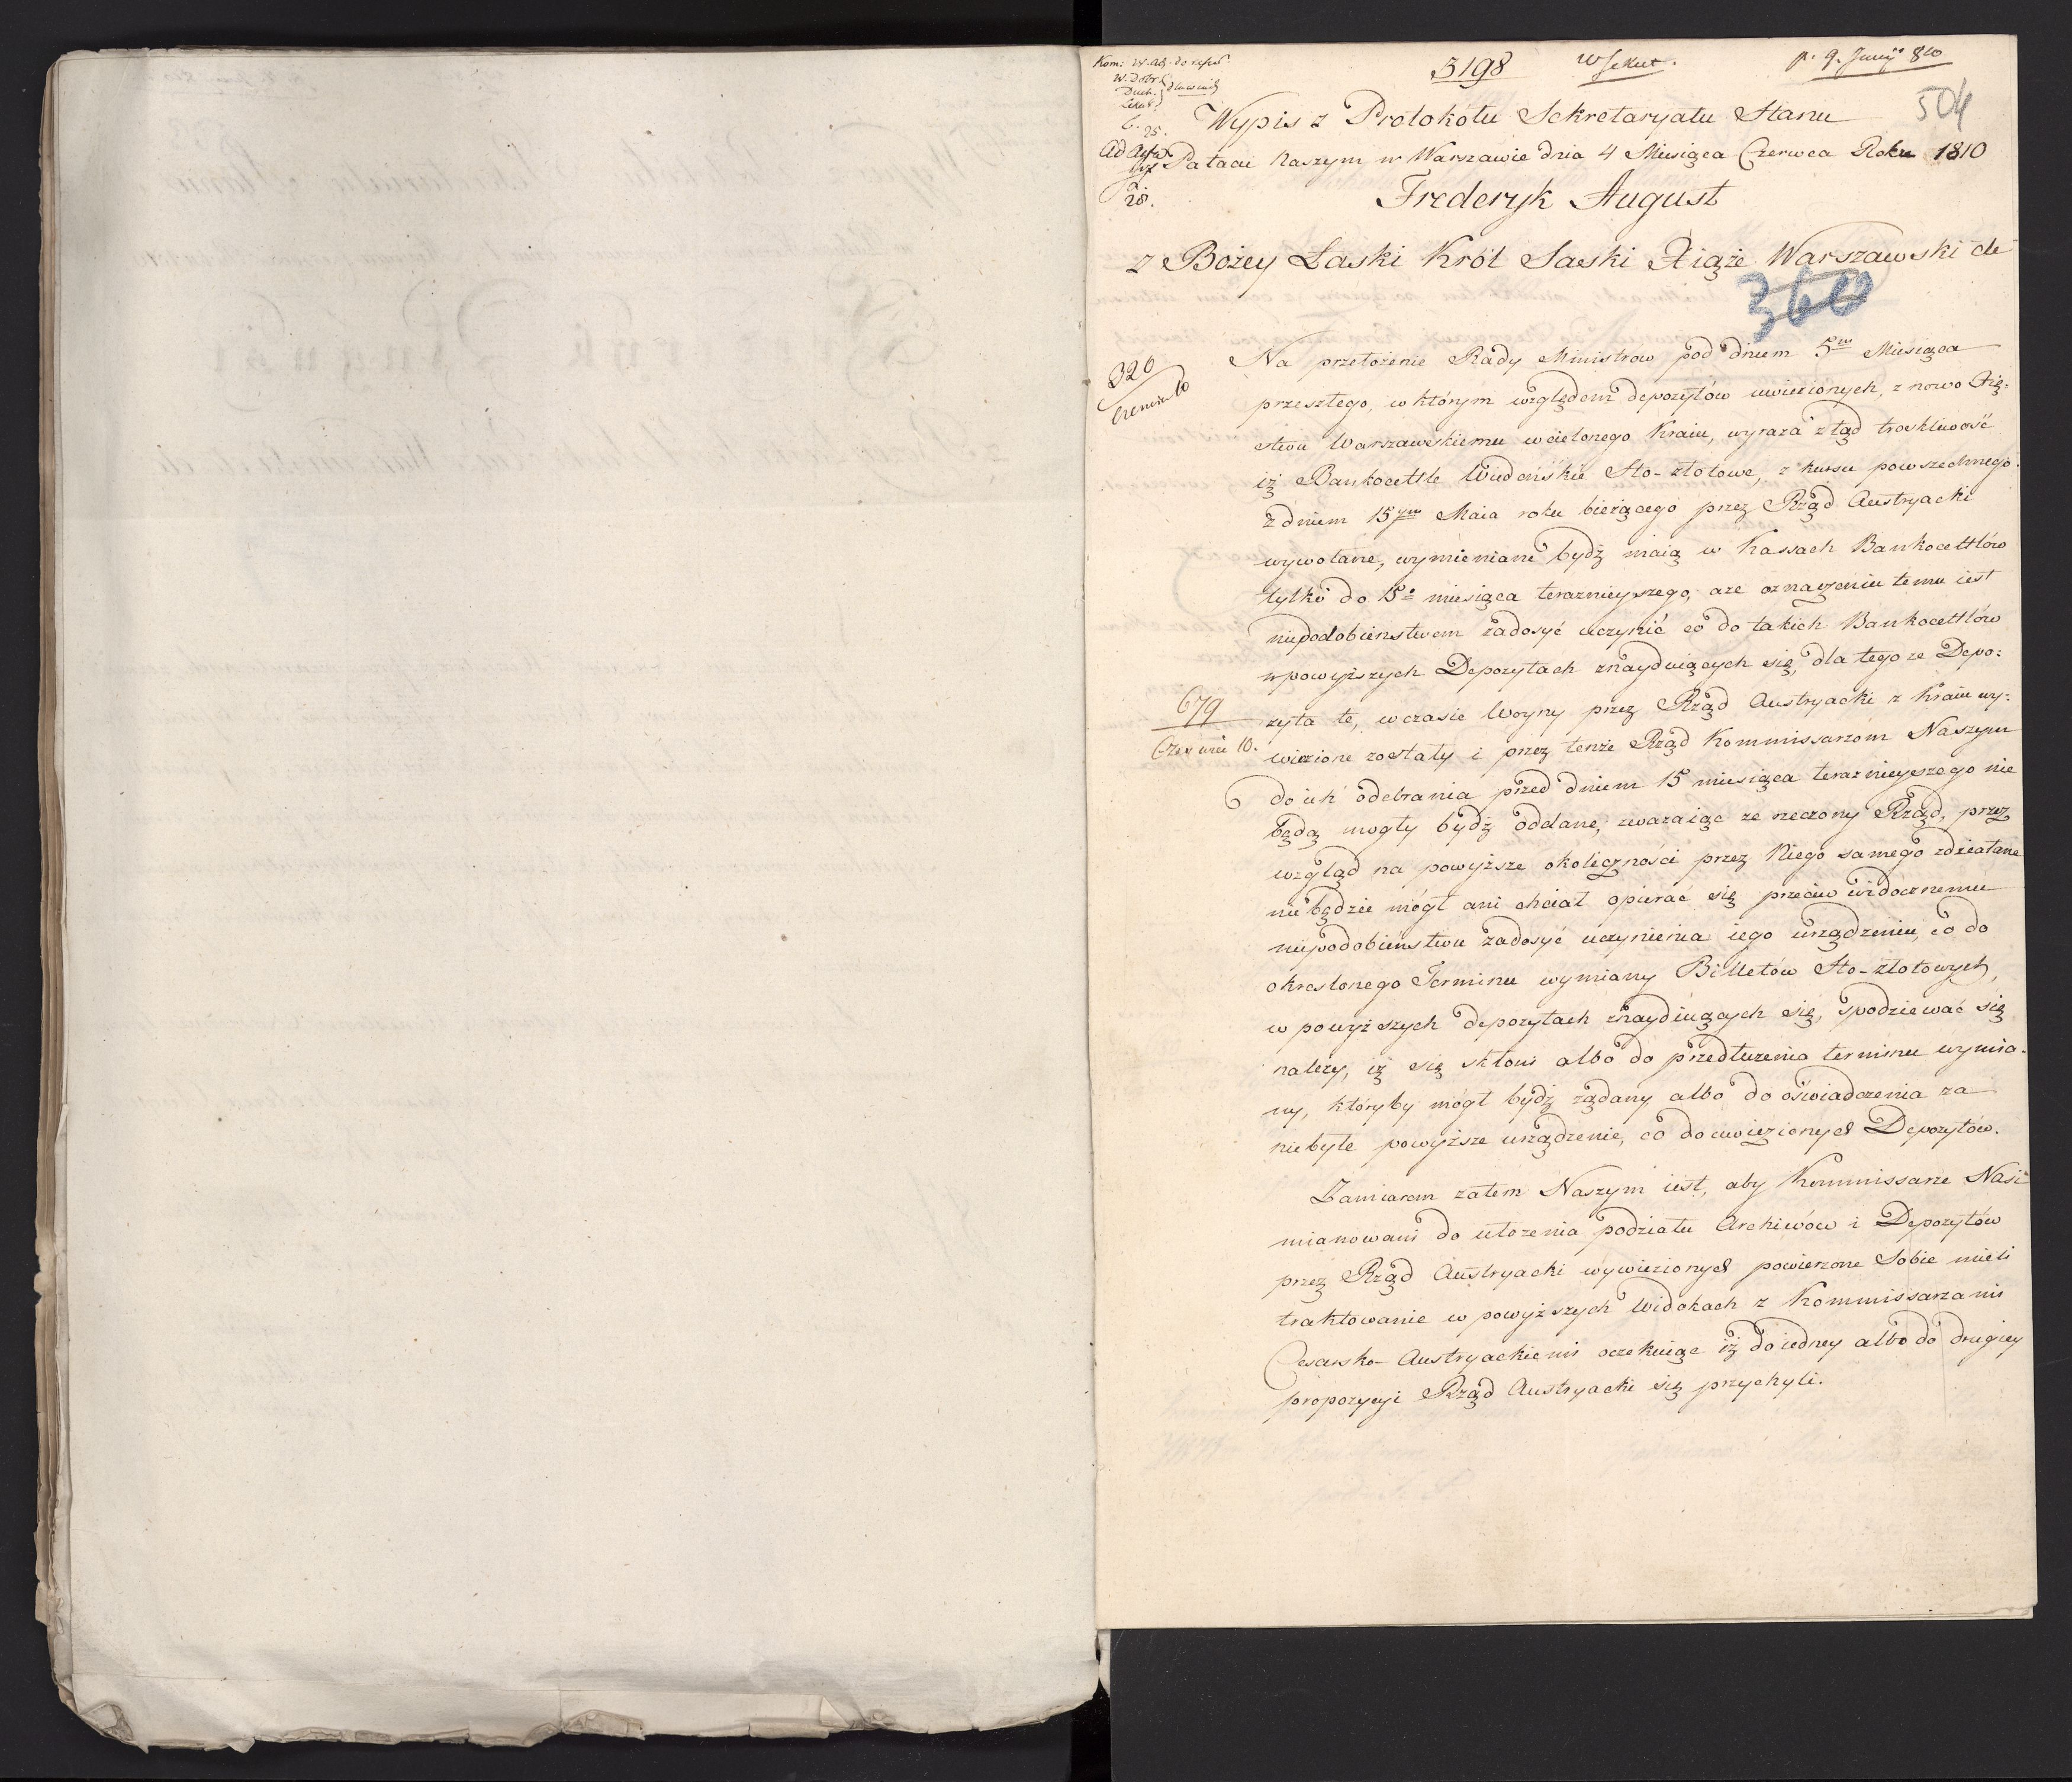 3198
p. 9. Junij 810
504
Wypis z Protokółu Sekretaryatu Stanu
w Pałacu Naszym w Warszawie dnia 4 Miesiąca Czerwca Roku 1810
28.
Frederyk August
z Bożey Łaski Król Saski Xiąże Warszawski etc
360
326
Czerwca 10
Na przełożenie Rady Ministrów pod dniem 5m Miesiąca
przeszłego, w którym względem depozytów uwiezionych, z nowo Xię-
stwu Warszawskiemu wcielonego Kraiu, wyraża ztąd troskliwość
iż Bankocettle Wiedeńskie Sto-złotowe, z kursu powszechnego
z dniem 15ym Maia roku bieżącego przez Rząd Austryacki
wywołane, wymieniane bydź maią w Kassach Bankocettlów
tylko do 15o miesiąca teraznieyszego, a że oznaczeniu temu iest
niepodobieństwem zadosyć uczynić co do takich Bankocettlów
w powyższych Depozytach znayduiących się, dla tego ze Depo-
679
Czerwca 10.
zyta te, w czasie Woyny przez Rząd Austryacki z Kraiu wy-
wiezione zostały i przez tenże Rząd Kommissarzom Naszym
do ich odebrania przed dniem 15 miesiąca teraznieyszego nie
będą mogły bydź oddane, zwazaiąc ze rzeczony Rząd, przez
wzgląd na powyższe okoliczności przez Niego samego zdziałane
nie będzie mógł ani chciał opierać się przeciw widocznemu
niepodobieństwu zadosyć uczynienia iego urządzeniu, co do
okreslonego Terminu wymiany Billetów Sto-złotowych,
w powyższych depozytach znayduiących się, spodziewać się
należy, iż się skłoni albo do przedłużenia terminu wymia-
ny, któryby mógł bydź żądany albo do oświadczenia za
niebyłe powyższe urządzenie, co do uwiezionych Depozytów.
Zamiarem zatem Naszym iest, aby Kommissarze Nasi
mianowani do ułożenia podziału Archiwów i Depozytów
przez Rząd Austryacki wywiezionych powierzone Sobie mieli
traktowanie w powyższych Widokach z Kommissarzami
Cesarsko-Austryackiemi oczekuiąc iż do iedney albo do drugiey
propozycyi Rząd Austryacki się przychyli.